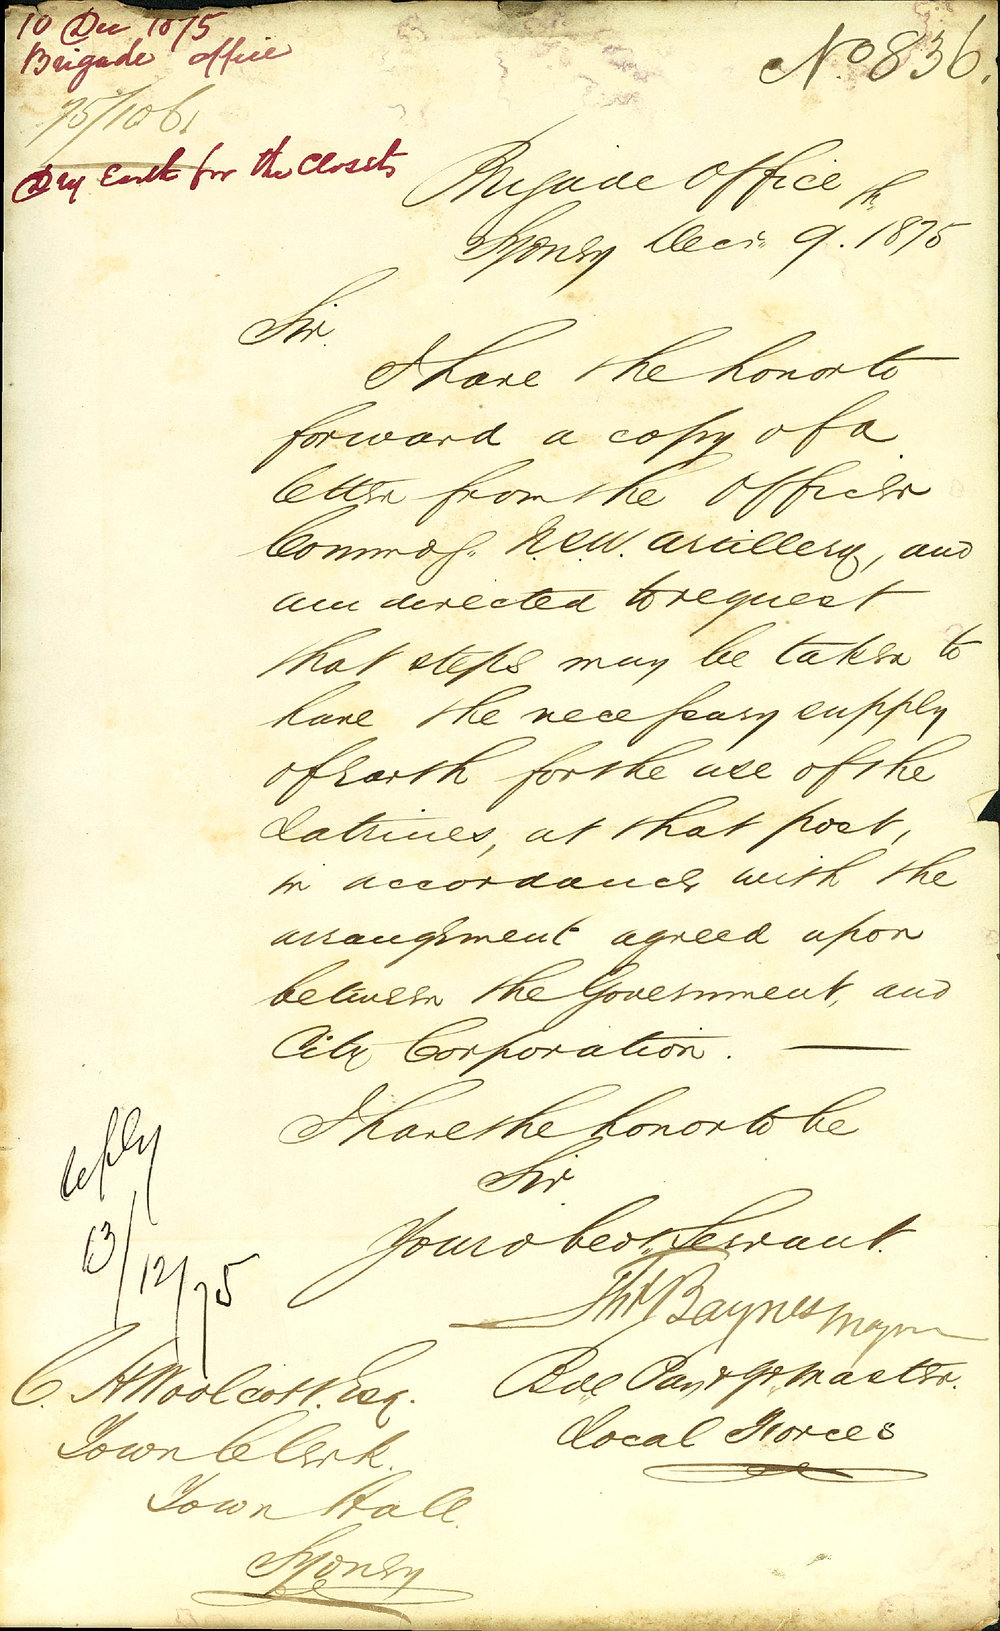 10 Dec 1875
Brigade Office
75/1061
Dry Earth for the Closets
No 836.
Brigade Office
Sydney Decr. 9th. 1875
Sir.
I have the honor to
forward a copy of a
letter from the Officer
Commdg. N.S.W. Artillery, and
am directed to request
that steps may be taken to
have the necessary supply
of Earth for the use of the
Latrines, at that post,
in accordance with the
arrangement agreed upon
between the Government, and
City Corporation. —
I have the honor to be
Sir
Your obedt. Servant.
Baynes Major
Bde Pay & Qr. Master.
Local Forces
reply
13/12/75
C. H Woolcott. Esq.
Town Clerk.
Town Hall.
Sydney